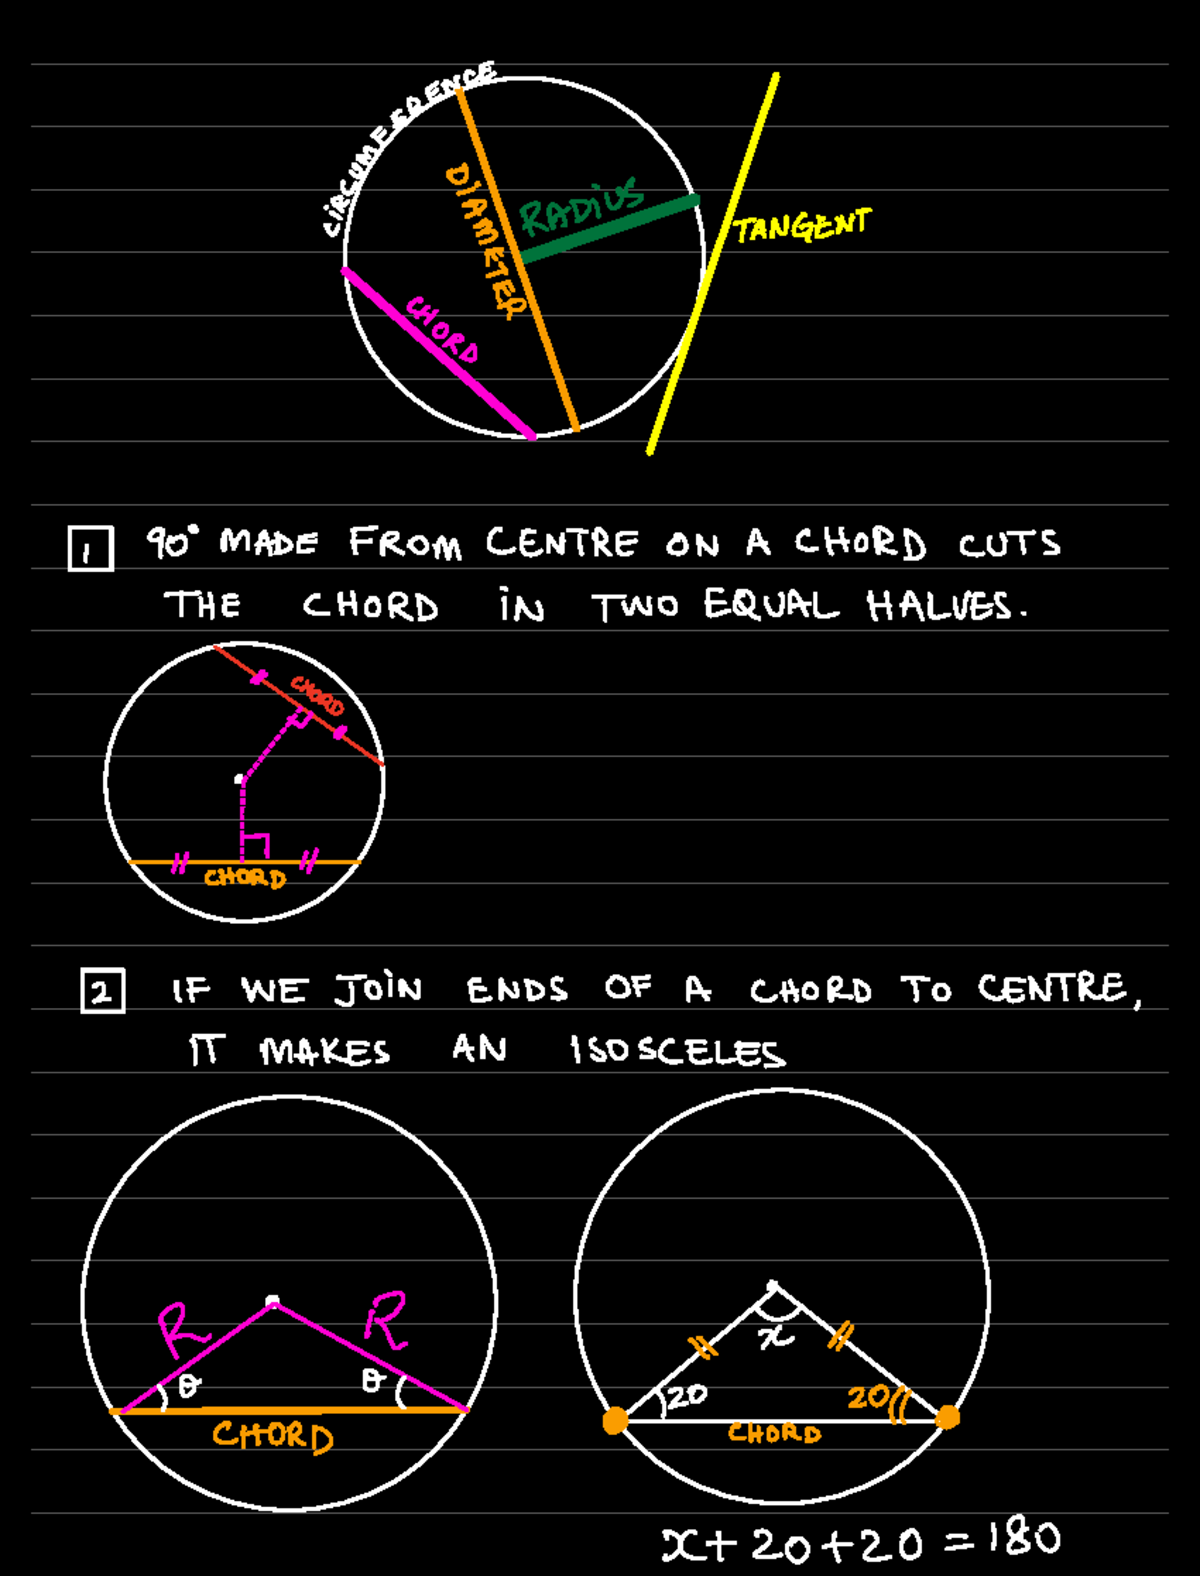 CIRCUMFERENCE
DIAMETER
RADIUS
TANGENT
CHORD
1 90° MADE FROM CENTRE ON A CHORD CUTS
THE CHORD IN TWO EQUAL HALVES.
CHORD
CHORD
2 IF WE JOIN ENDS OF A CHORD TO CENTRE,
IT MAKES AN ISOSCELES
R R
θ θ
CHORD
x
20 20
CHORD
x + 20 + 20 = 180